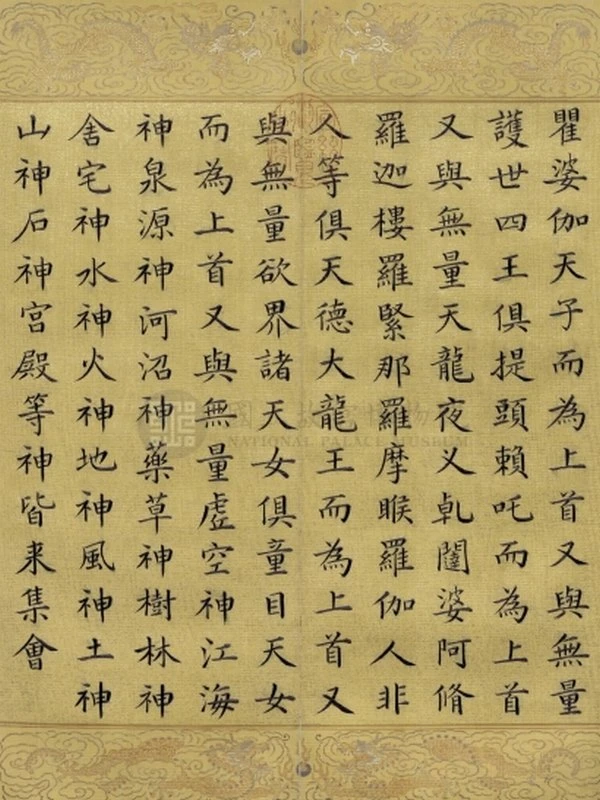 瞿婆伽天子而為上首又與無量
護世四王俱提頭賴吒而為上首
又與無量天龍夜叉乹闥婆阿脩
羅迦樓羅緊那羅摩睺羅伽人非
人等俱天德大龍王而為上首又
與無量欲界諸天女俱童目天女
而為上首又與無量虛空神江海
神泉源神河沼神藥草神樹林神
舍宅神水神火神地神風神土神
山神石神宮殿等神皆来集會
NATIONAL PALACE MUSEUM